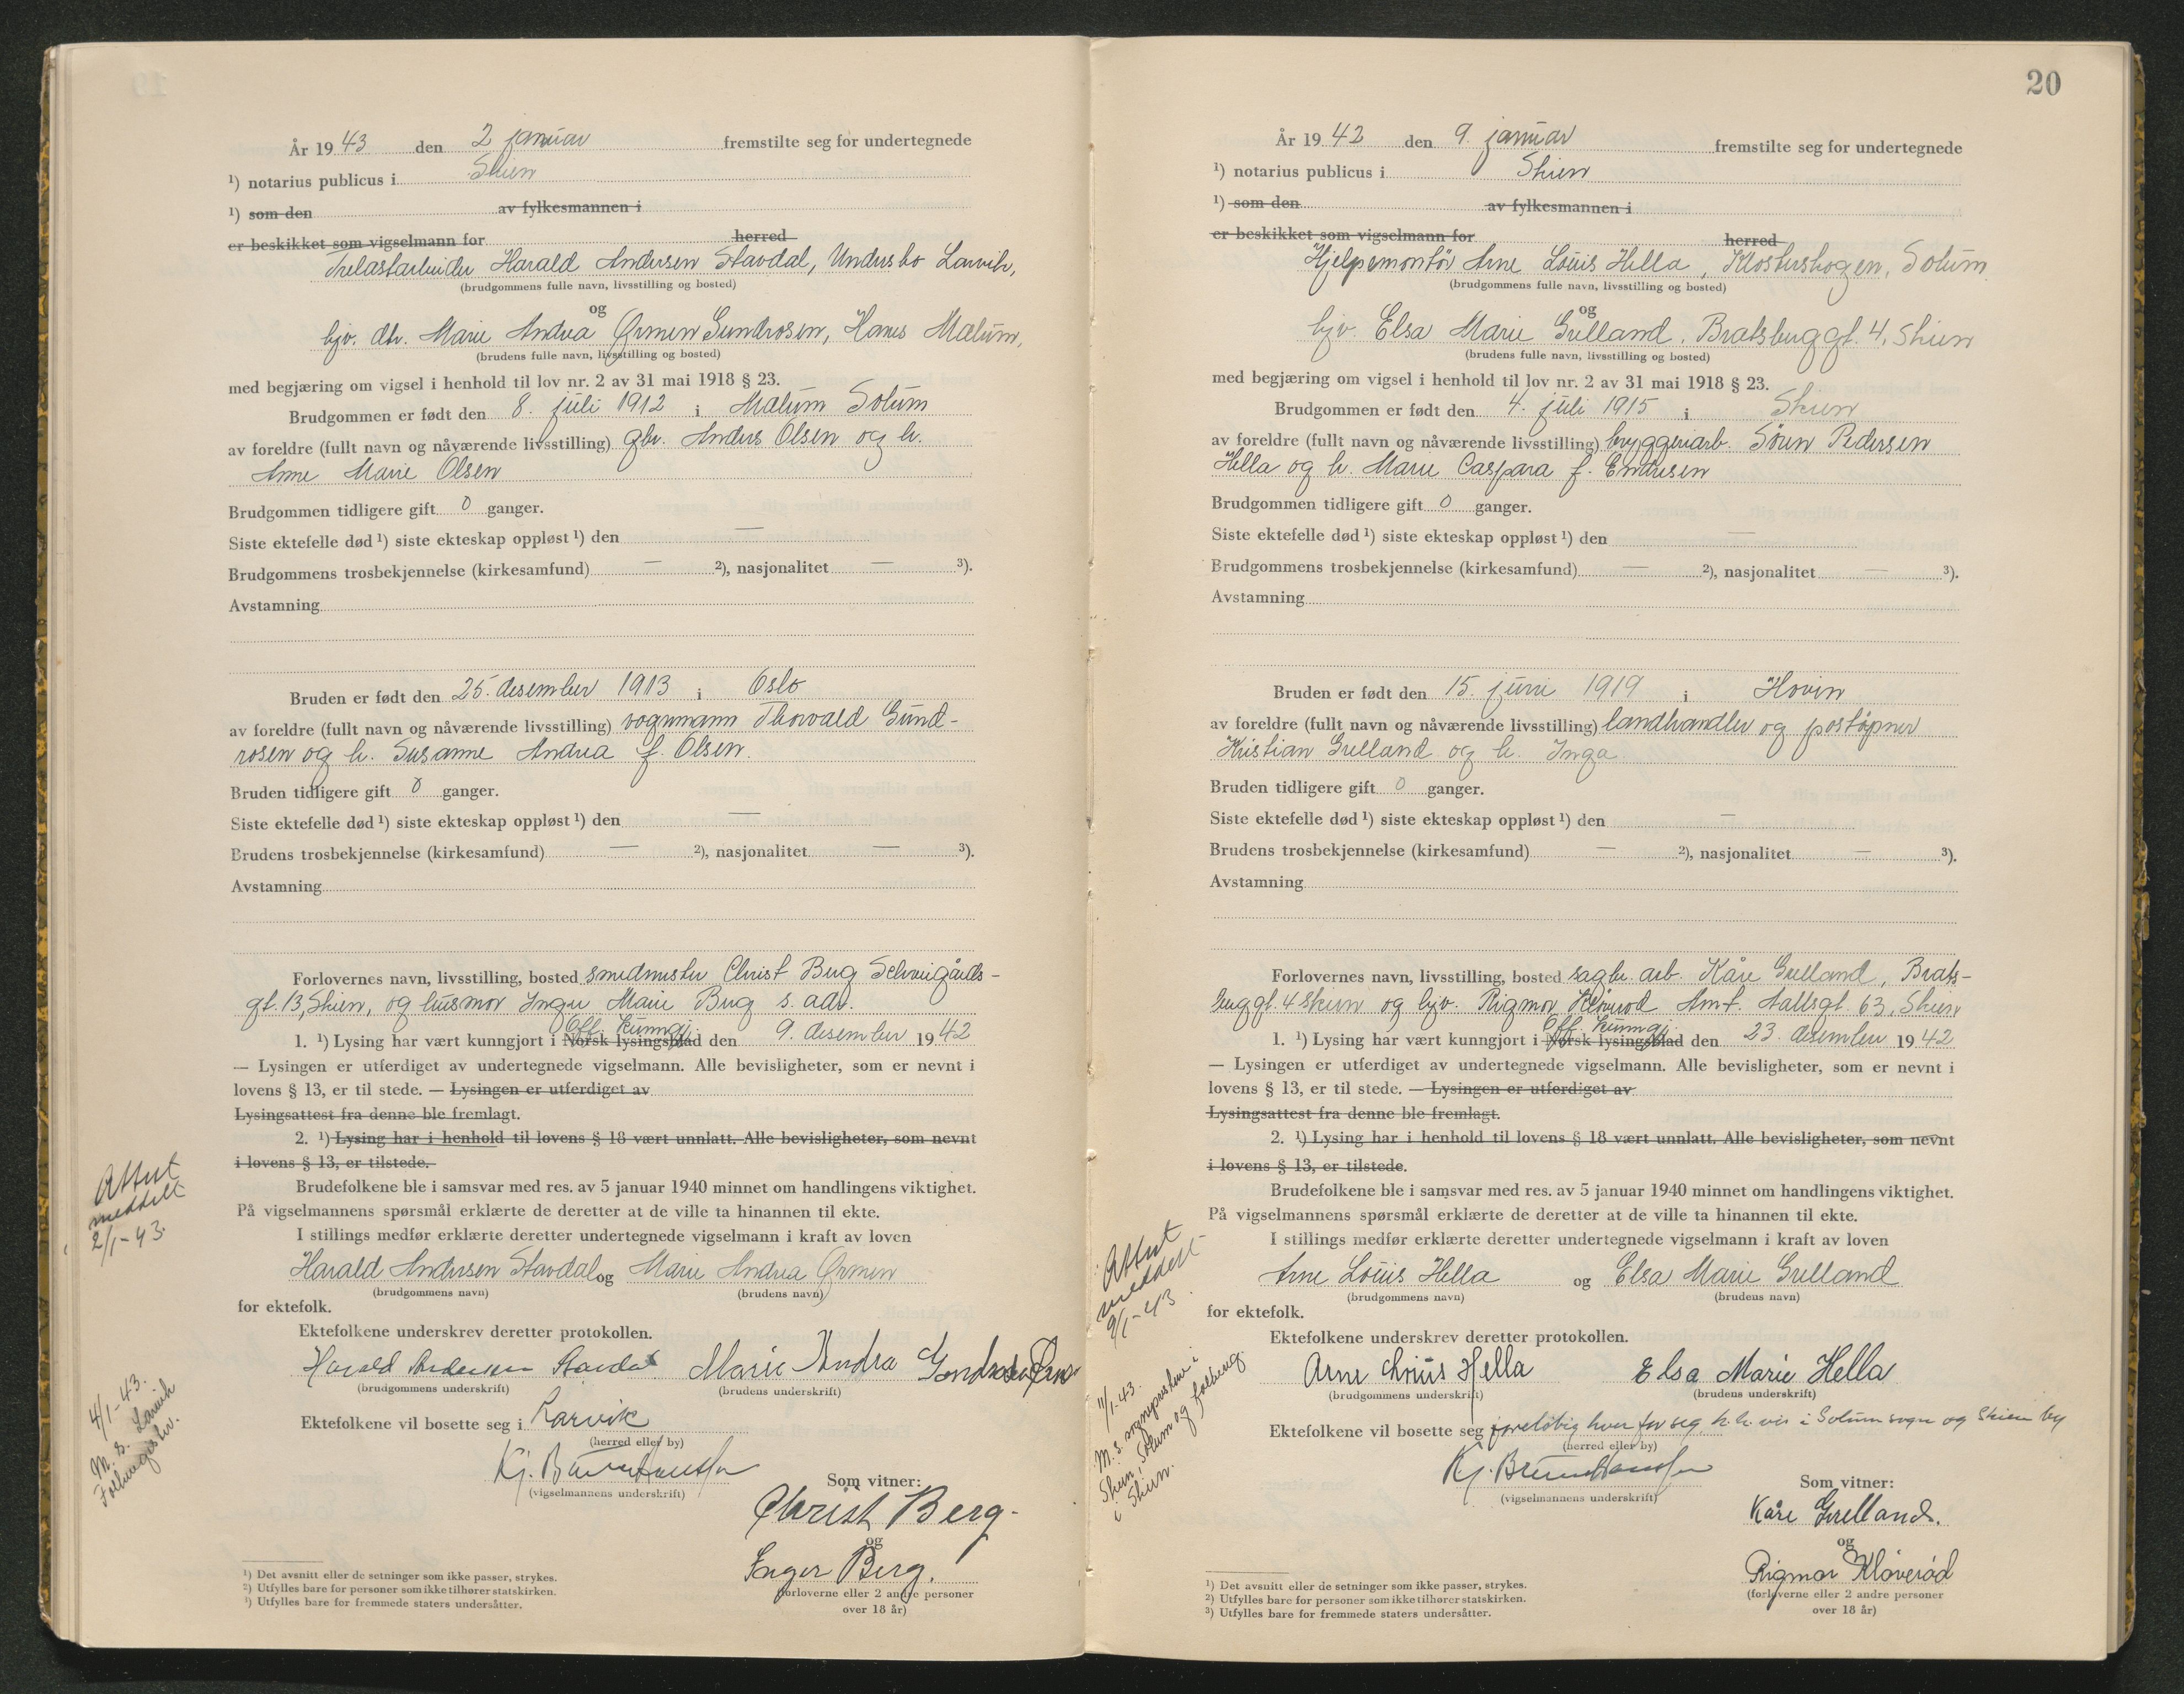 År 1943 den 2 januar fremstilte seg for undertegnede
¹) notarius publicus i Skien
¹) som den av fylkesmannen i
er beskikket som vigselmann for herred
Trelastarbeider Harald Andersen Stavdal, Undersbo Larvik,
(brudgommens fulle navn, livsstilling og bosted)
og
hjv. dtr. Marie Andrea Ørmen Gundrosen, Hanes Mælum,
(brudens fulle navn, livsstilling og bosted)
med begjæring om vigsel i henhold til lov nr. 2 av 31 mai 1918 § 23.
Brudgommen er født den 8. juli 1912 i Mælum Solum
av foreldre (fullt navn og nåværende livsstilling) gbr. Anders Olsen og h.
Anne Marie Olsen
Brudgommen tidligere gift 0 ganger.
Siste ektefelle død ¹) siste ekteskap oppløst ¹) den —
Brudgommens trosbekjennelse (kirkesamfund) — ²), nasjonalitet — ³).
Avstamning
Bruden er født den 25. desember 1913 i Oslo
av foreldre (fullt navn og nåværende livsstilling) vognmann Thorvald Gund-
rosen og h. Susanne Andrea f. Olsen.
Bruden tidligere gift 0 ganger.
Siste ektefelle død ¹) siste ekteskap oppløst ¹) den —
Brudens trosbekjennelse (kirkesamfund) — ²), nasjonalitet — ³).
Avstamning
Forlovernes navn, livsstilling, bosted smedmester Christ Berg Schweigårds-
gt. 13, Skien, og husmor Inger Marie Berg s. adr.
Off. kunngj.
1. ¹) Lysing har vært kunngjort i Norsk lysingsblad den 9. desember 1942
— Lysingen er utferdiget av undertegnede vigselmann. Alle bevisligheter, som er nevnt i
lovens § 13, er til stede. — Lysingen er utferdiget av
Lysingsattest fra denne ble fremlagt.
2. ¹) Lysing har i henhold til lovens § 18 vært unnlatt. Alle bevisligheter, som nevnt
i lovens § 13, er tilstede.
Brudefolkene ble i samsvar med res. av 5 januar 1940 minnet om handlingens viktighet.
På vigselmannens spørsmål erklærte de deretter at de ville ta hinannen til ekte.
I stillings medfør erklærte deretter undertegnede vigselmann i kraft av loven
Harald Andersen Stavdal og Marie Andrea Ørmen
(brudgommens navn) (brudens navn)
for ektefolk.
Ektefolkene underskrev deretter protokollen.
Harald Andersen Stavdal Marie Andrea Gundrosen
(brudgommens underskrift) (brudens underskrift)
Ektefolkene vil bosette seg i Larvik
(herred eller by)
(vigselmannens underskrift)
Som vitner:
Christ Berg.
og
Inger Berg.
(forloverne eller 2 andre personer
over 18 år)
¹) Det avsnitt eller de setninger som ikke passer, strykes.
²) Utfylles bare for personer som ikke tilhører statskirken.
³) Utfylles bare for fremmede staters undersåtter.
Attest
meddelt
2/1-43.
4/1-43.
M. s. Larvik
Folkeregister.
20
År 1942 den 9. januar fremstilte seg for undertegnede
¹) notarius publicus i Skien
¹) som den av fylkesmannen i
er beskikket som vigselmann for herred
Hjelpemontør Arne Louis Hella, Klosterskogen, Solum
(brudgommens fulle navn, livsstilling og bosted)
og
hjv. Elsa Marie Grelland, Bratsberggt. 4, Skien
(brudens fulle navn, livsstilling og bosted)
med begjæring om vigsel i henhold til lov nr. 2 av 31 mai 1918 § 23.
Brudgommen er født den 4. juli 1915 i Skien
av foreldre (fullt navn og nåværende livsstilling) bryggeriarb. Søren Pedersen
Hella og h. Marie Caspara f. Endresen
Brudgommen tidligere gift 0 ganger.
Siste ektefelle død ¹) siste ekteskap oppløst ¹) den —
Brudgommens trosbekjennelse (kirkesamfund) — ²), nasjonalitet — ³).
Avstamning
Bruden er født den 15. juni 1919 i Hovin
av foreldre (fullt navn og nåværende livsstilling) landhandler og postøpner
Kristian Grelland og h. Inga
Bruden tidligere gift 0 ganger.
Siste ektefelle død ¹) siste ekteskap oppløst ¹) den —
Brudens trosbekjennelse (kirkesamfund) — ²), nasjonalitet — ³).
Avstamning
Forlovernes navn, livsstilling, bosted sagbr. arb. Kåre Grelland, Brats-
berggt. 4 Skien og hjv. Rigmor Kløverød Amt. Aallsgt. 63, Skien
Off. kunngj.
1. ¹) Lysing har vært kunngjort i Norsk lysingsblad den 23. desember 1942
— Lysingen er utferdiget av undertegnede vigselmann. Alle bevisligheter, som er nevnt i
lovens § 13, er til stede. — Lysingen er utferdiget av
Lysingsattest fra denne ble fremlagt.
2. ¹) Lysing har i henhold til lovens § 18 vært unnlatt. Alle bevisligheter, som nevnt
i lovens § 13, er tilstede.
Brudefolkene ble i samsvar med res. av 5 januar 1940 minnet om handlingens viktighet.
På vigselmannens spørsmål erklærte de deretter at de ville ta hinannen til ekte.
I stillings medfør erklærte deretter undertegnede vigselmann i kraft av loven
Arne Louis Hella og Elsa Marie Grelland
(brudgommens navn) (brudens navn)
for ektefolk.
Ektefolkene underskrev deretter protokollen.
Arne Louis Hella Elsa Marie Hella
(brudgommens underskrift) (brudens underskrift)
Ektefolkene vil bosette seg foreløbig hver for seg, h.h.vis i Solum sogn og Skien by
(herred eller by)
(vigselmannens underskrift)
Som vitner:
Kåre Grelland.
og
Rigmor Kløverød
(forloverne eller 2 andre personer
over 18 år)
¹) Det avsnitt eller de setninger som ikke passer, strykes.
²) Utfylles bare for personer som ikke tilhører statskirken.
³) Utfylles bare for fremmede staters undersåtter.
Attest
meddelt
9/1-43.
11/1-43.
M. s. sogneprestene i
Skien, Solum og folkereg.
i Skien.